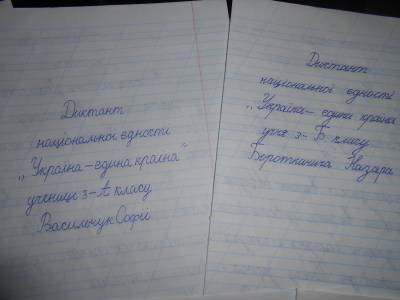 Диктант
національної єдності
„Україна – єдина країна"
учениці 3-А класу
Васильчук Софії
Диктант
національної єдності
„Україна – єдина країна
учня 3-Б класу
Назара